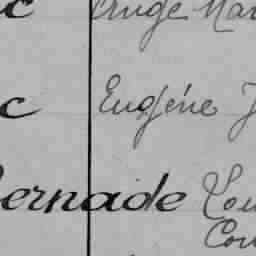 c Ange Mar
c Eugéne J
Bernade Lou
Con